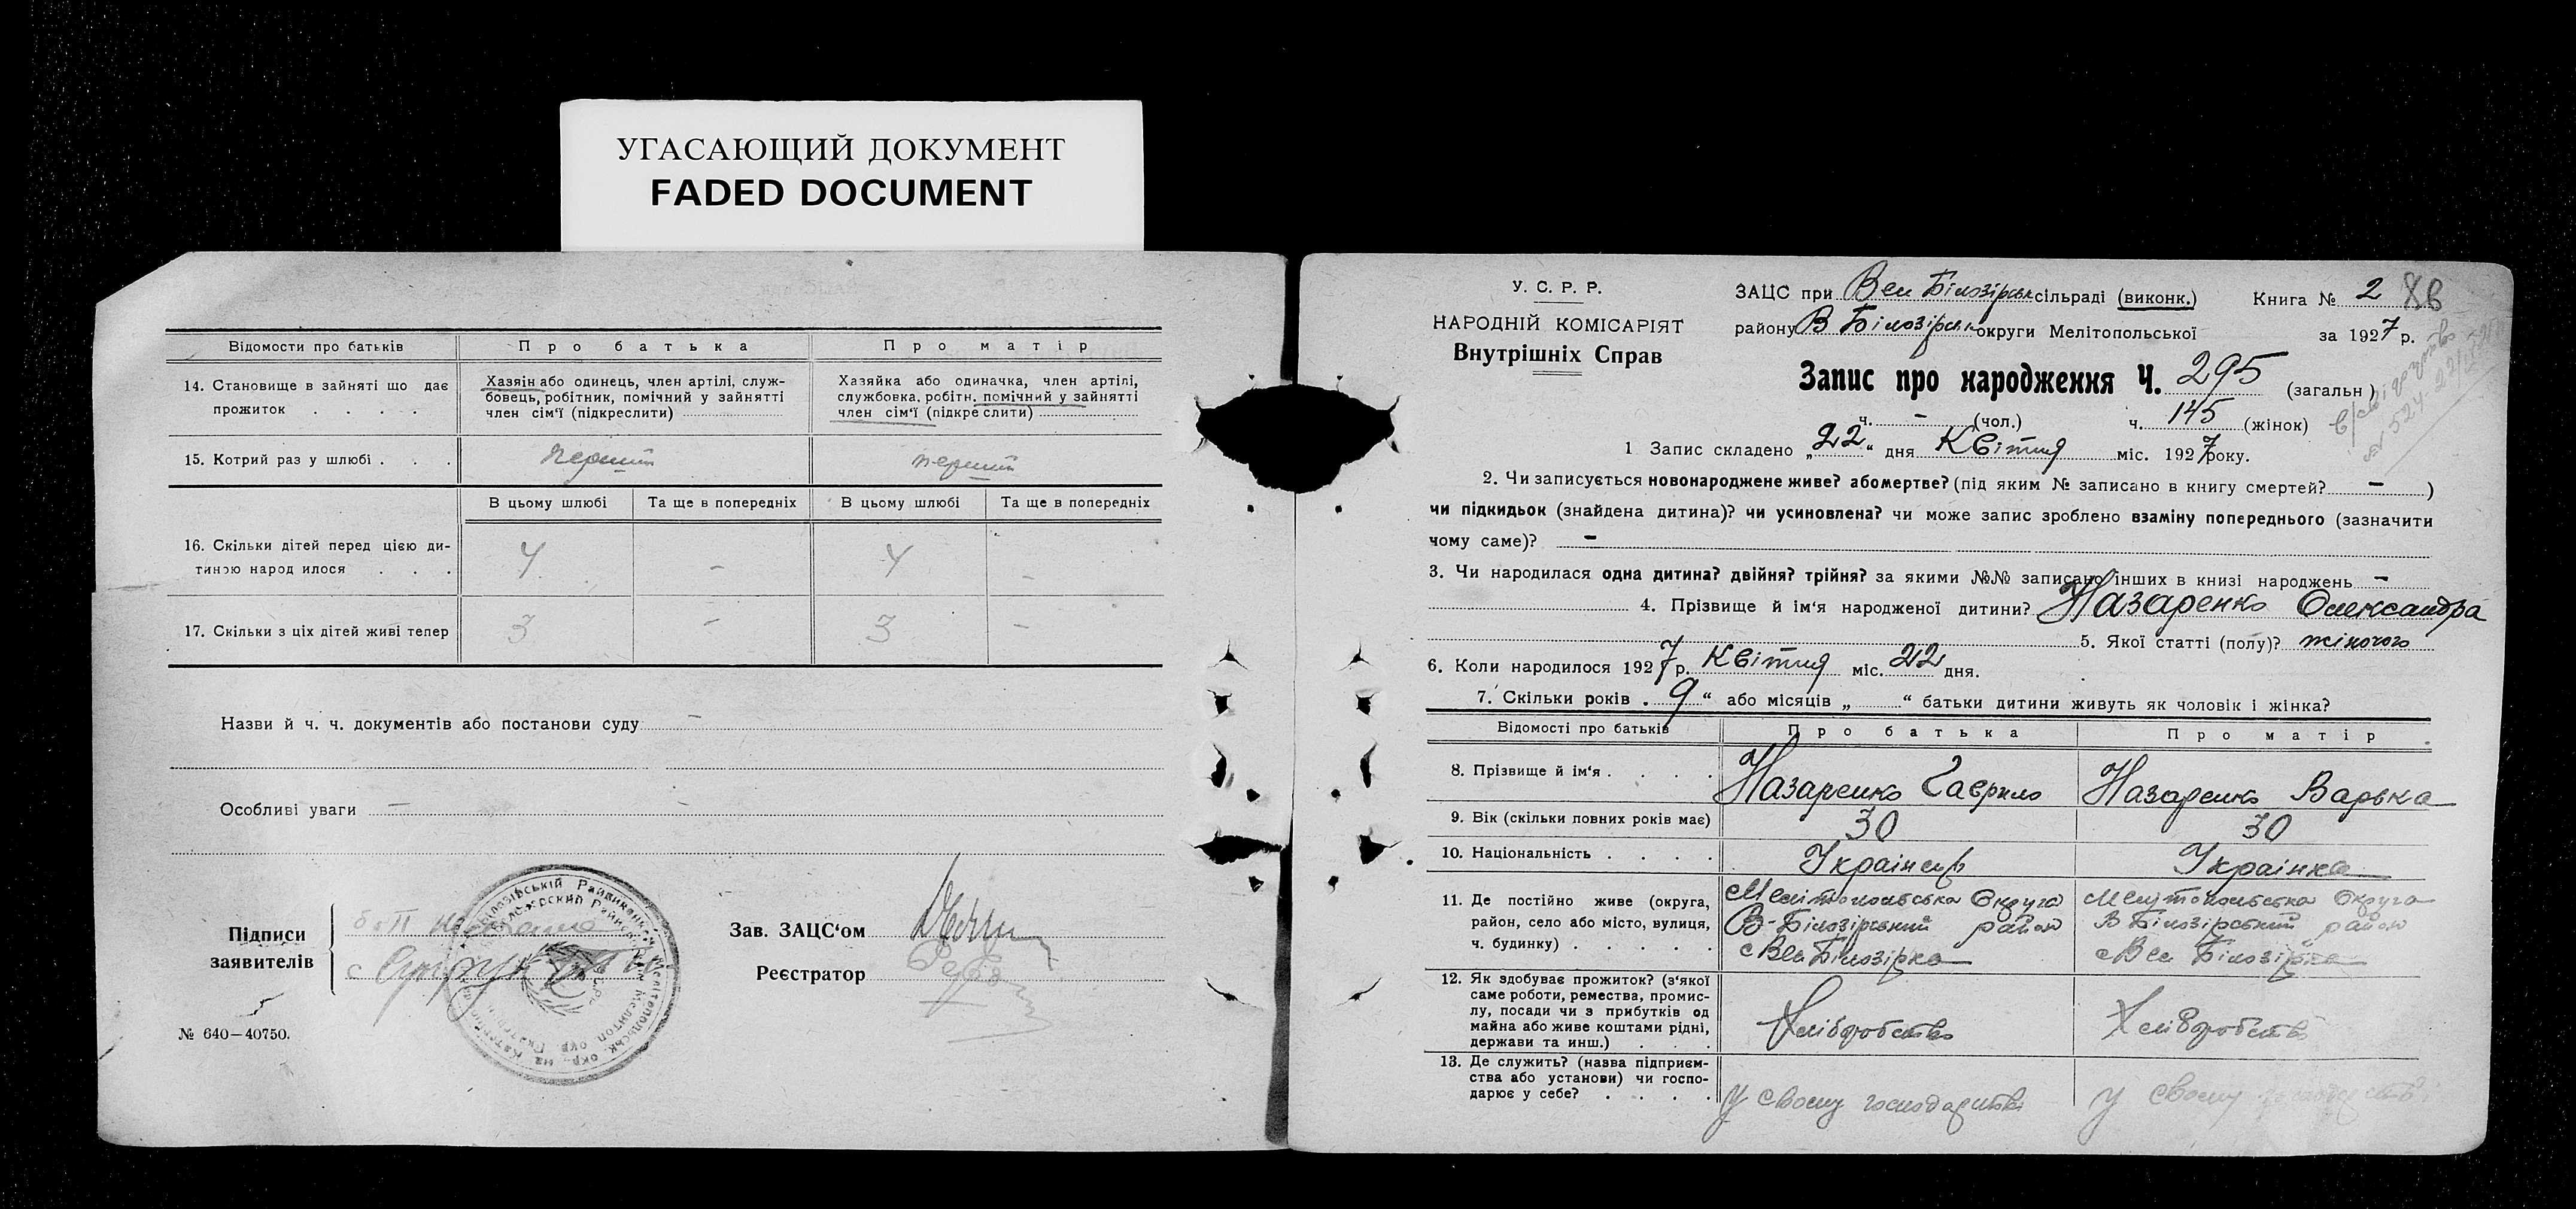 УГАСАЮЩИЙ ДОКУМЕНТ
FADED DOCUMENT
Відомости про батьків
Про батька
Про матір
14. Становище в зайняті що дає
прожиток . . . .
Хазяїн або одинець, член артілі, служ-
бовець, робітник, помічний у зайнятті
член сім‘ї (підкреслити)
Хазяйка або одиначка, член артілі,
службовка, робітн. помічний у зайнятті
член сім‘ї (підкреслити)
15. Котрий раз у шлюбі . . .
перший
перший
В цьому шлюбі
Та ще в попередніх
В цьому шлюбі
Та ще в попередніх
16. Скільки дітей перед цією ди-
тиною народилося . . .
4 - 4 -
17. Скільки з ціх дітей живі тепер
3 - 3 -
Назви й ч. ч. документів або постанови суду -
Особливі уваги —
Підписи
заявителів
Зав. ЗАЦС‘ом
Реєстратор
№ 640—40750.
У. С. Р. Р.
НАРОДНІЙ КОМІСАРІЯТ
Внутрішніх Справ
ЗАЦС при Вел Білозірськ сільраді (виконк.)
Книга № 2 86
району В Білозірськ округи Мелітопольської
за 1927 р.
Запис про народження Ч. 295 (загальн)
ч. - (чол.)
ч. 145 (жінок)
1 Запис складено „22“ дня Квітня міс. 1927 року.
2. Чи записується новонароджене живе? абомертве? (під яким № записано в книгу смертей? - )
чи підкидьок (знайдена дитина)? чи усиновлена? чи може запис зроблено взаміну попереднього (зазначити
чому саме)? -
3. Чи народилася одна дитина? двійня? трійня? за якими №№ записано інших в книзі народжень -
4. Прізвище й ім‘я народженої дитини? Назаренко Олександра
5. Якої статті (полу)? жіночого
6. Коли народилося 1927 р. Квітня міс. 22 дня.
7. Скільки років . 9 “ або місяців „ “ батьки дитини живуть як чоловік і жінка?
Відомості про батьків
Про батька
Про матір
8. Прізвище й ім‘я . . . .
Назаренко Гаврило
Назаренко Варька
9. Вік (скільки повних років має)
30
30
10. Національність . . . .
Українець
Українка
11. Де постійно живе (округа,
район, село або місто, вулиця,
ч. будинку) . . . . .
Мелітопольська Округа
В-Білозірський район
с Вел Білозірка
Мелітопольська Округа
В Білозірський район
с Вел Білозірка
12. Як здобуває прожиток? (з‘якої
саме роботи, ремества, промис-
лу, посади чи з прибутків од
майна або живе коштами рідні,
держави та инш.) . . .
Хліборобство
Хліборобство
13. Де служить? (назва підприєм-
ства або установи) чи госпо-
дарює у себе? . . . .
У своему господарстві
У своему господарстві